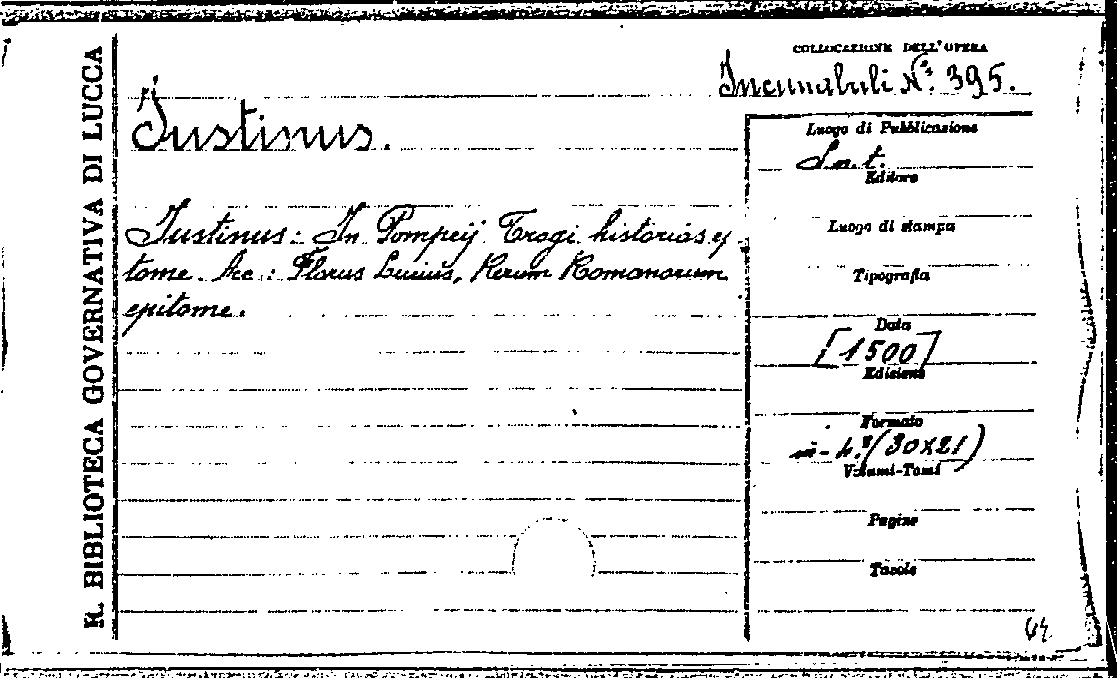 R. BIBLIOTECA GOVERNATIVA DI LUCCA
COLLOCAZIONE DELL'OPERA
Incunabuli N.° 395.
Iustinus.
Iustinus: In Pompeij Trogi historias ej
tome. Acc: Florus Lucius, Rerum Romanorum
epitome.
Luogo di Pubblicazione
S.n.t.
Editore
Luogo di stampa
Tipografia
Data
[1500]
Edizione
Formato
in-4.° (30x21)
Volumi-Tomi
Pagine
Tavole
64